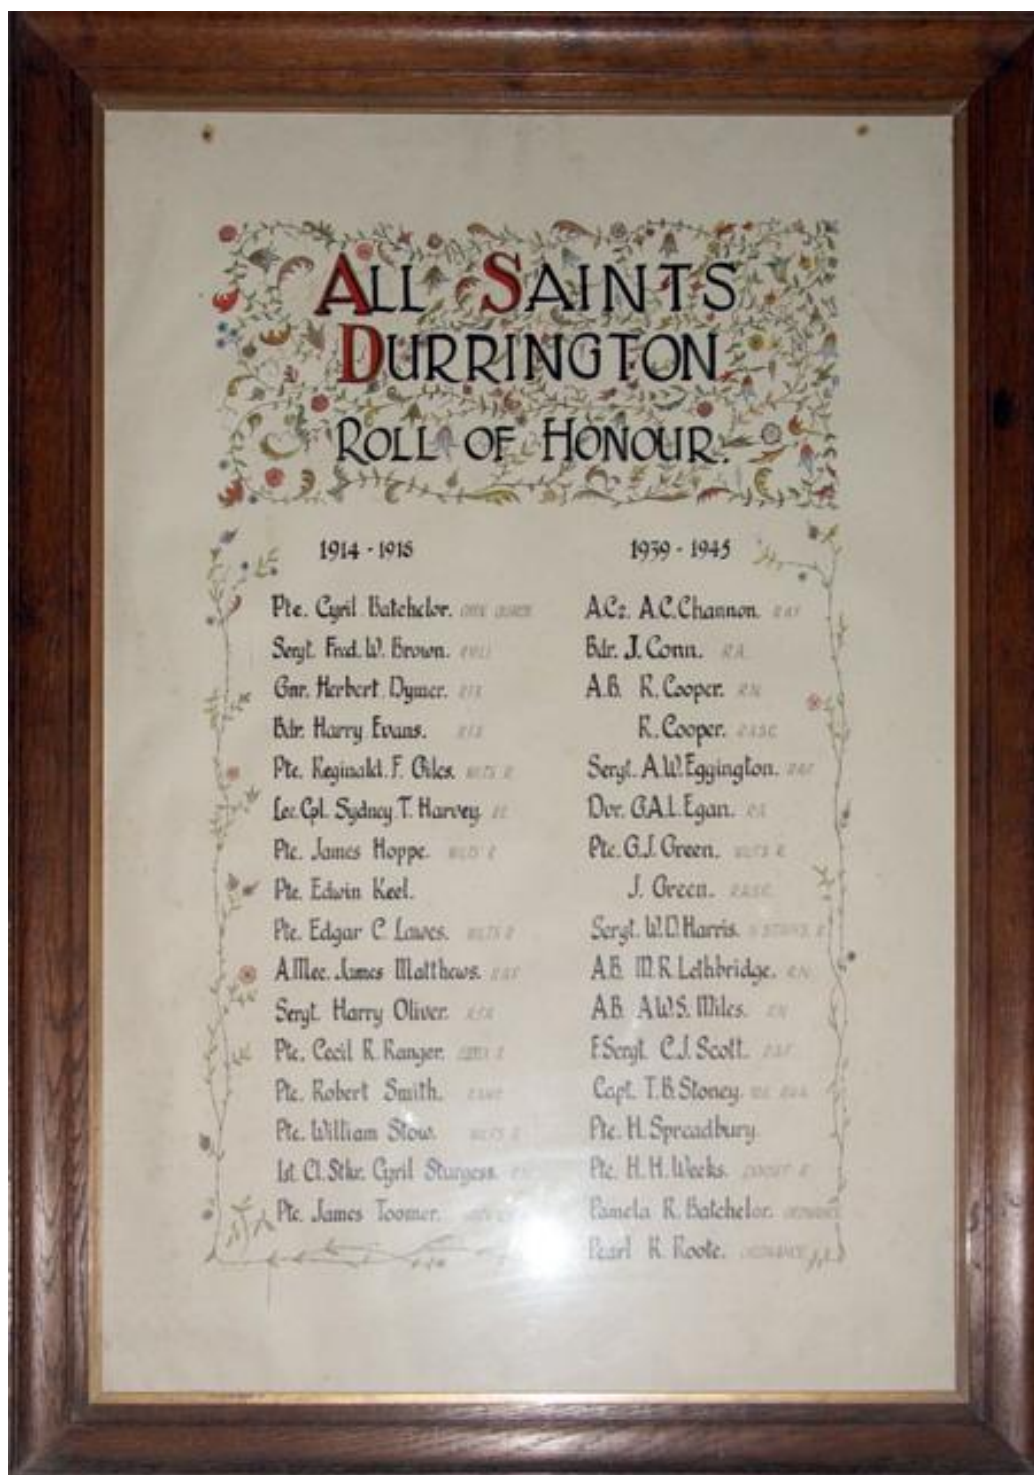 ALL SAINTS
DURRINGTON
ROLL OF HONOUR.
1914 - 1918
Pte. Cyril Batchelor.
Sergt. Fred. W. Brown.
Gnr. Herbert Dymer. R.F.A.
Bdr. Harry Evans. R.F.A.
Pte. Reginald. F. Giles. WILTS R
Lce. Cpl. Sydney T. Harvey. R.E.
Pte. James Hoppe. WILTS R
Pte. Edwin Keel.
Pte. Edgar C. Lawes. WILTS R
A.Mec. James Matthews. R.A.F.
Sergt. Harry Oliver.
Pte. Cecil R. Ranger.
Pte. Robert Smith.
Pte. William Stow. WILTS R
1st. Cl. Stkr. Cyril Sturgess.
Pte. James Toomer.
1939 - 1945
A.C2. A.C. Channon. R.A.F.
Bdr. J. Conn. R.A.
A.B. R. Cooper. R.N.
R. Cooper. R.A.S.C.
Sergt. A.W. Eggington. R.A.F.
Dvr. G.A.L. Egan. R.A.
Pte. G.J. Green. WILTS R
J. Green. R.A.S.C.
Sergt. W.D. Harris.
A.B. M.R. Lethbridge. R.N.
A.B. A.W.S. Miles. R.N.
F.Sergt. C.J. Scott. R.A.F.
Capt. T.B. Stoney.
Pte. H. Spreadbury.
Pte. H.H. Weeks. DORSET R
Pamela R. Batchelor. ORDNANCE
Pearl K. Roote. ORDNANCE